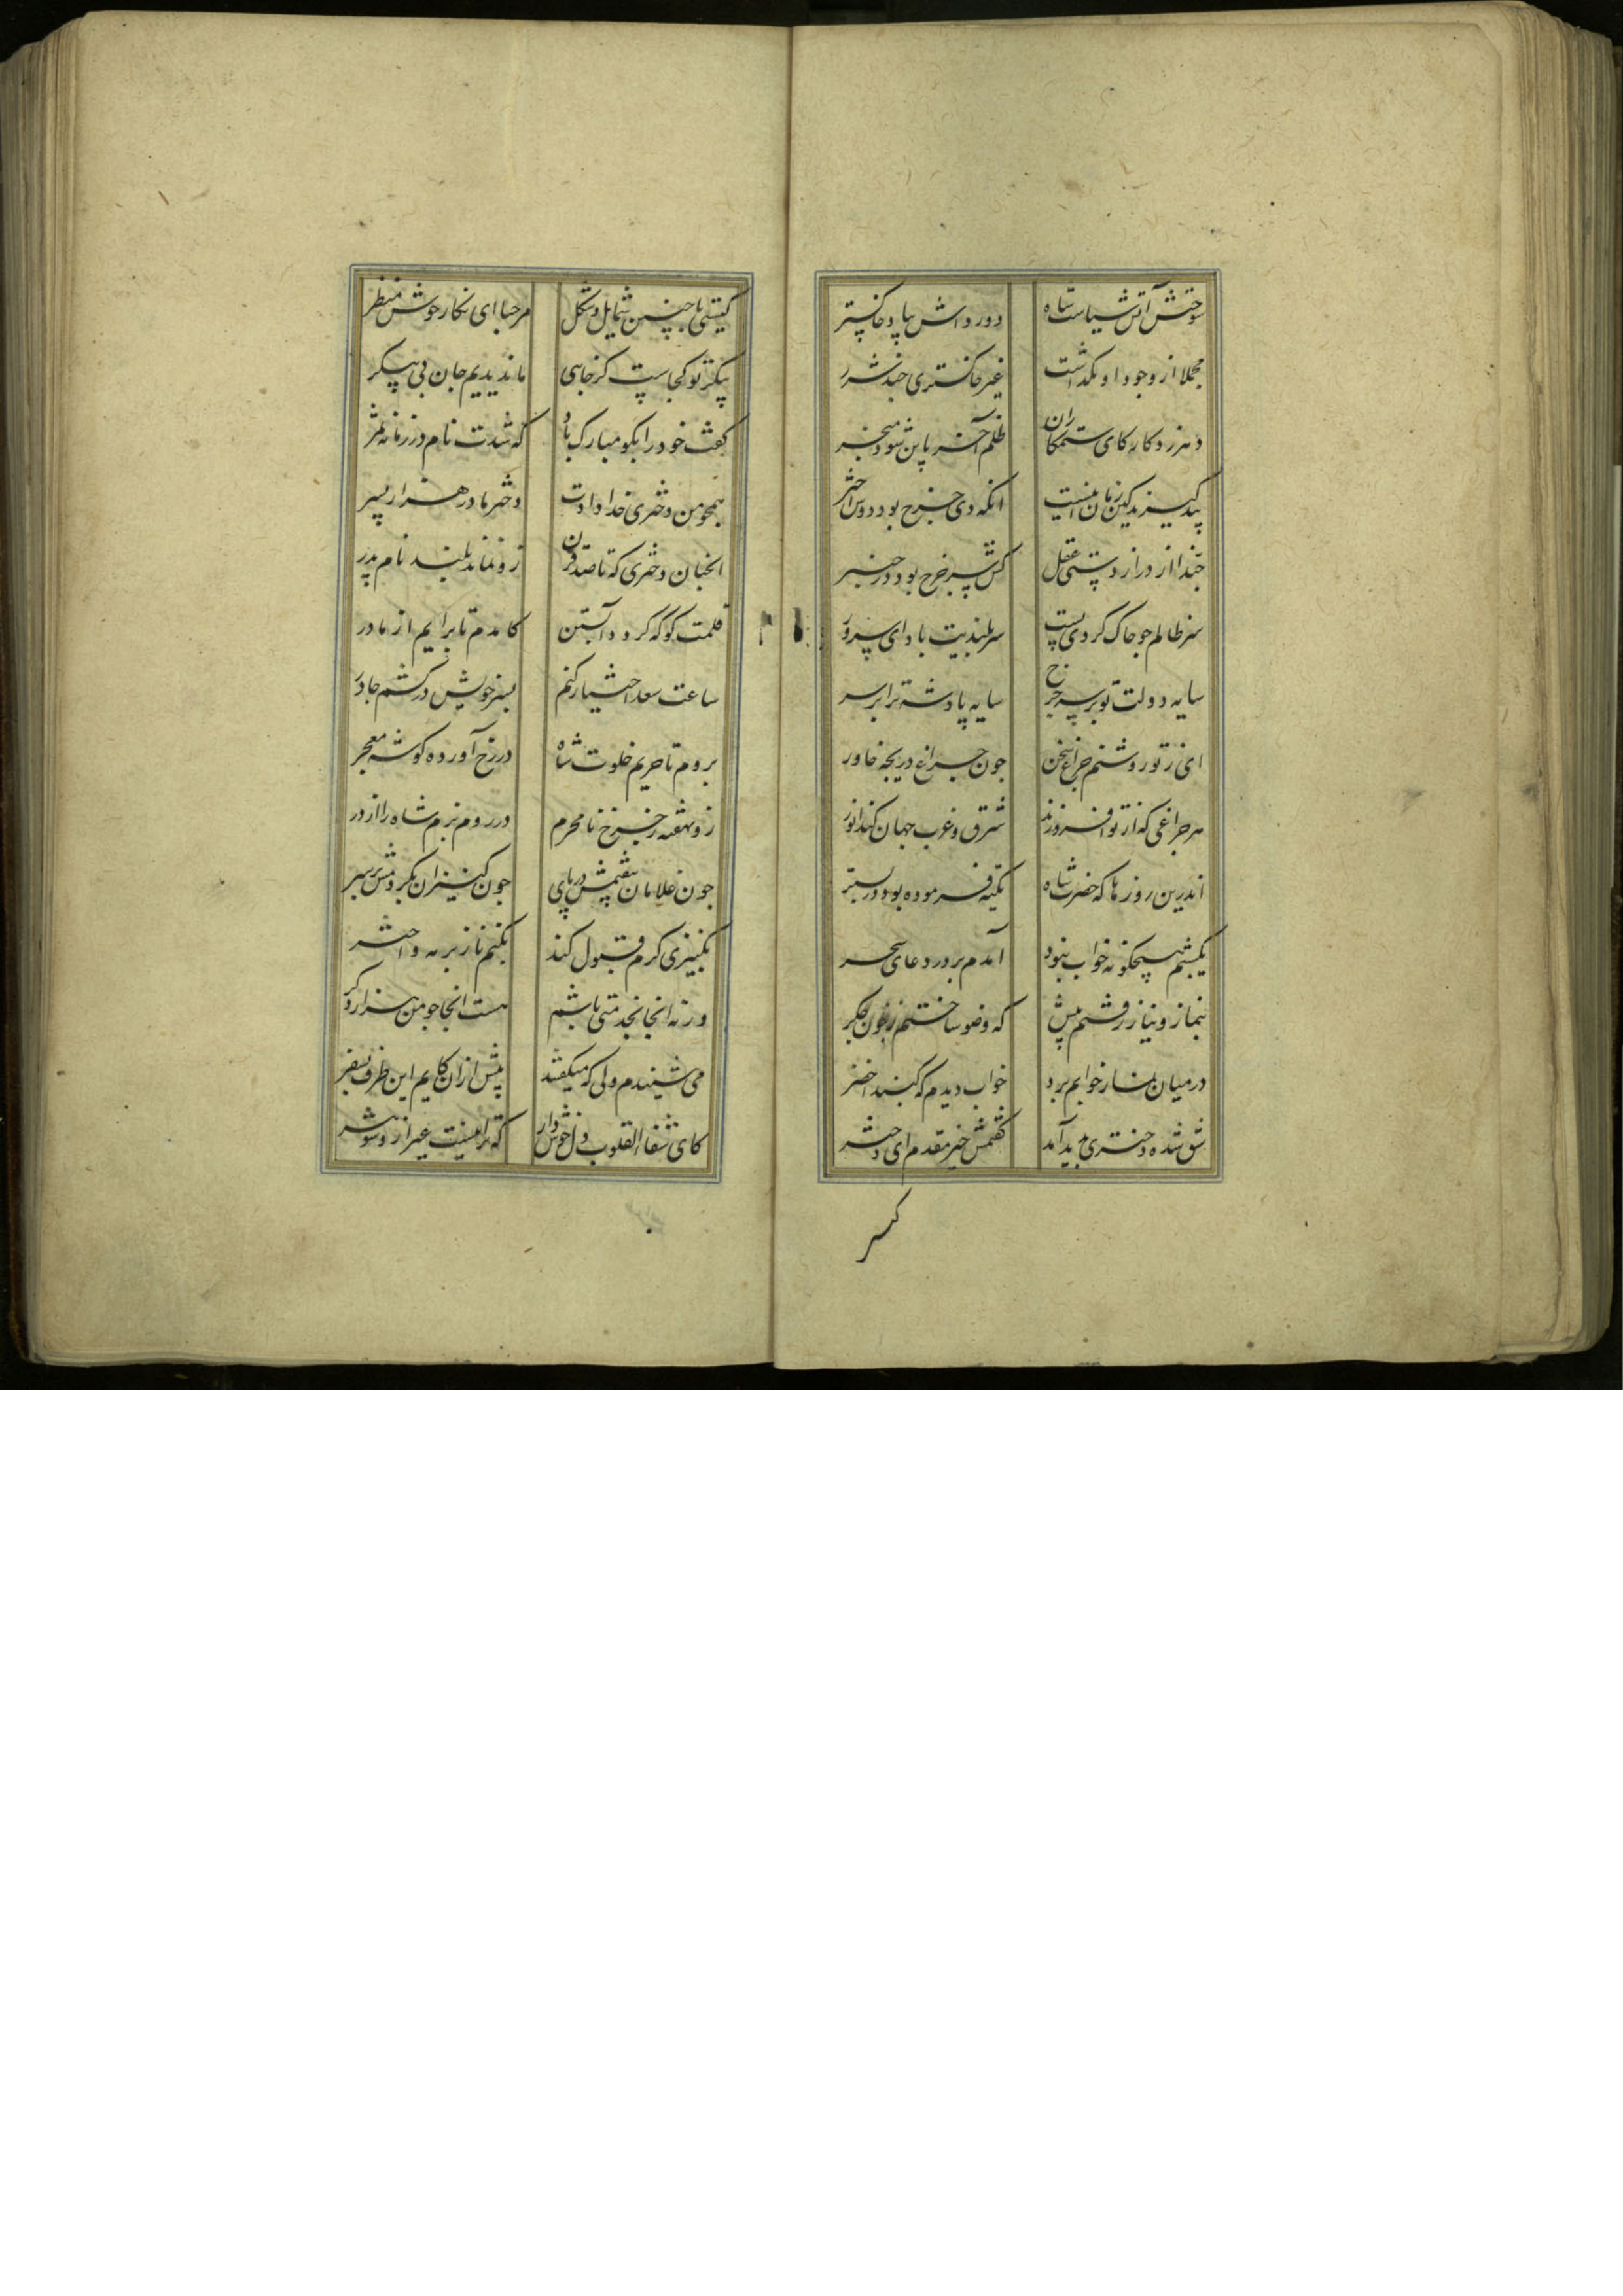 سوختش آتش سیاست شاه
دور داش بباد خاکستر
مجملا از وجود او نگذاشت
غیر خاکستری چند شرر
دهر زد کار کای ستمکاران
ظلم آخر باین شود منجر
انکه دی چرخ بود دوش اختر
جند از دراز دستی عقل
کش سپر چرخ بود در چنبر
سر ظالم جو خاک کردی پست
سر بلندیت باد ای سرور
سایه دولت تو بر سر چرخ
سایه پادشه ترا بر سر
ای ز تو روشنم چراغ سخن
جون چراغ دریجه خاور
هر جراغی که از تو افروزند
شرق و غرب جهان کند انور
اندرین روزها که حضرت شاه
تکیه فرموده بود در بستر
یکشبم هیچکونه خواب نبود
آمدم بر در دعای سحر
بنماز و نیاز رفتم پیش
که وضو ساختم ز خون جکر
درمیان نماز خوابم برد
خواب دیدم که کنبد اخضر
شق شده دختری پدید آمد
کفتمش خیر مقدم ای دختر
کیستی با جنین شمایل و شکل
مرحبا ای نکار خوش منظر
پیکر تو کجاست کز جایی
ما ندیدیم جان بی پیکر
کفت خود را بکو مبارک باد
که شدت نام در زمانه ثمر
همجو من دختری خدا دادت
دختر مادر هزار پسر
انجنان دختری که تا صد قرن
زو نماند بلند نام پدر
قلمت کو که کردد آبستن
کامدم تا برایم از مادر
ساعت سعد اختیار کنم
بسر خویش درکشم جادر
بروم تا حریم خلوت شاه
در رخ آورده کوشه معجر
زو نهفته رخ نامحرم
در روم بزم شاه را از در
جون غلامان بیفتمش در پای
جون کنیزان بکردمش بر سر
بکنیزی کرم قبول کند
بکنم ناز بر مه و اختر
ورنه انجا بخدمتی باشم
هست انجا جو من هزار دکر
می شنیدم ولی که میکفتند
پیش ازان کایم این طرف بسفر
کای شفاء القلوب دل خوش دار
که ترا نیست غیر ازو شوهر
کیسر